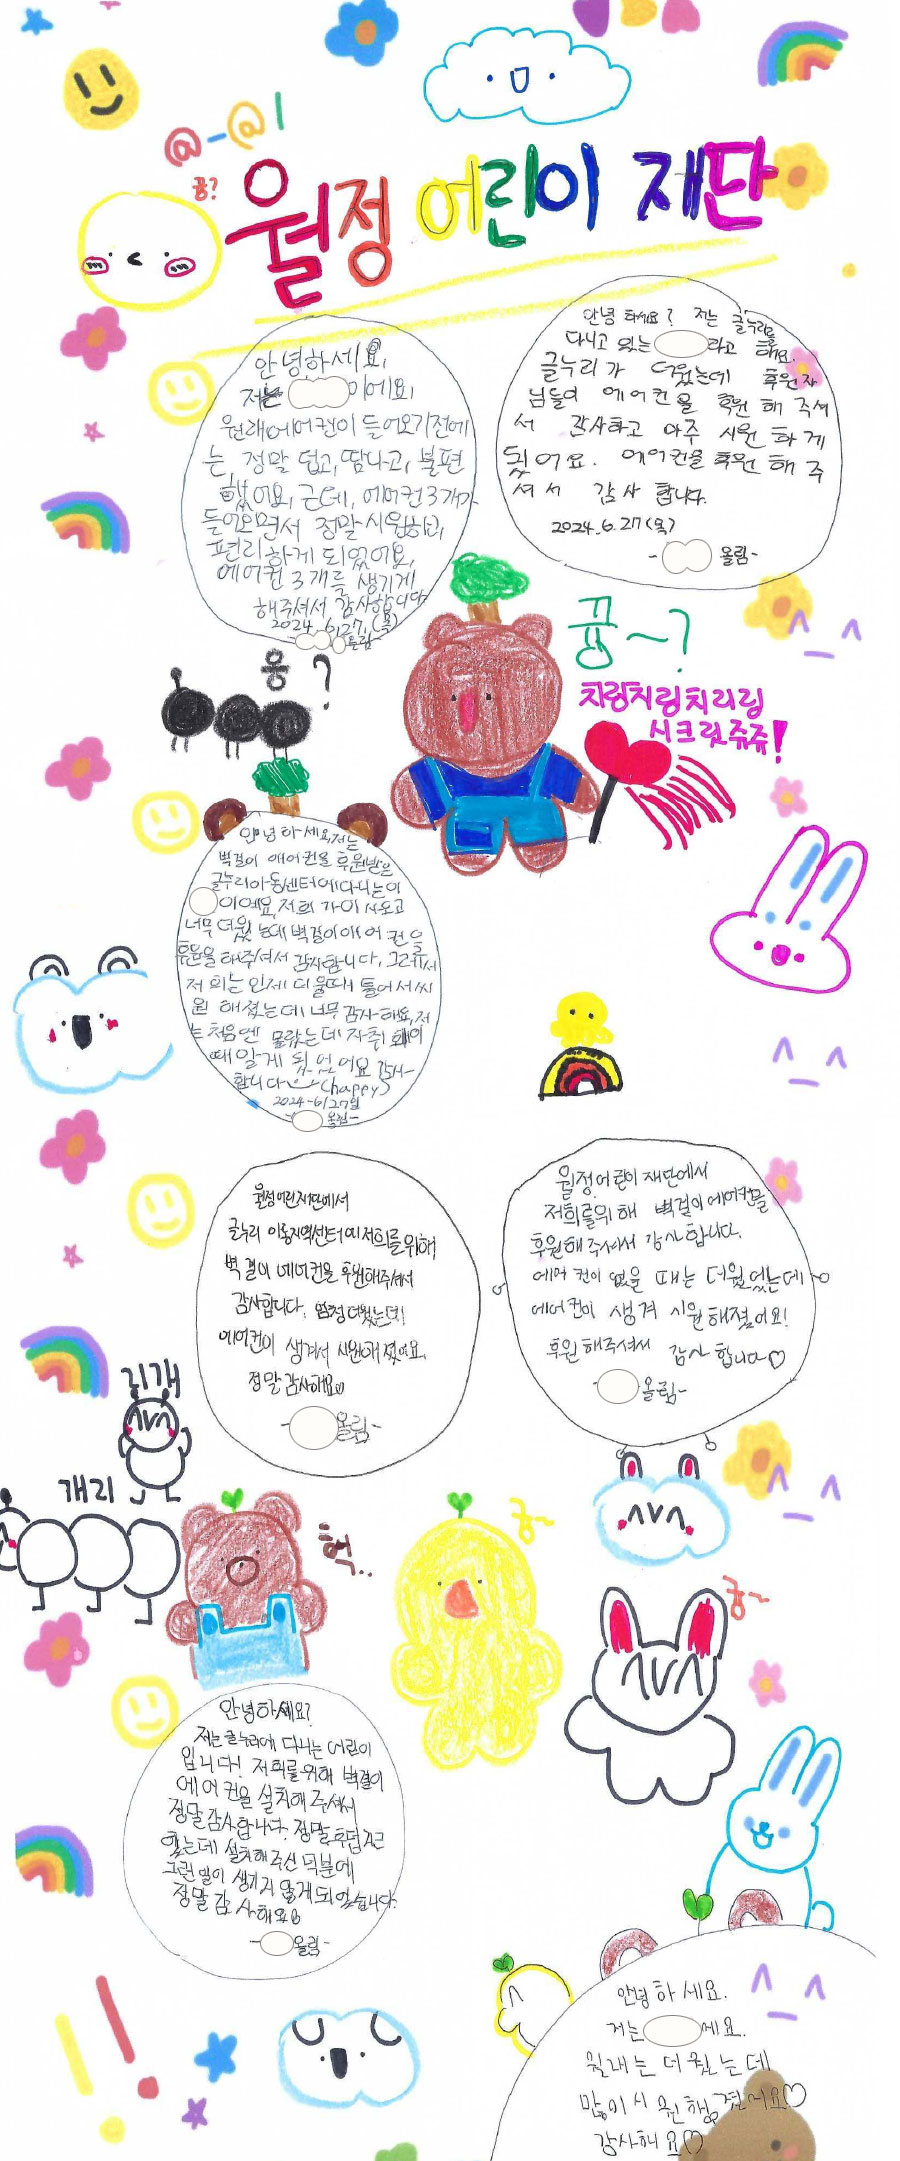 @-@!
꿍?
월정 어린이 재단
안녕하세요,
저는 이에요,
원래에어컨이 들어오기전에
는, 정말 덥고, 땀나고, 불편
했어요, 근데, 에어컨3개가
들어오면서 정말시원하고,
편리하게 되었어요,
에어컨 3개를 생기게
해주셔서 감사합니다
2024.6.27.(목)
올림-
안녕 하세요? 저는 글누리를
다니고 있는 라고 해요.
글누리가 더웠는데 후원자
님들이 에어컨을 후원 해 주셔
서 감사하고 아주 시원 하게
되었어요. 에어컨을 후원 해 주
셔서 감사 합니다.
2024.6.27(목)
- 올림-
꿍~?
치링치링치리링
시크릿쥬쥬!
웅?
안녕하세요,저는
벽걸이 에어컨을 후원받은
글누리아동센터에다니는이
이에요, 저희가 이사오고
너무 더웠는데 벽걸이에어컨을
후원을 해주셔서 감사합니다, 그래서
저희는 인제 더울때 틀어서 시
원해졌는데 너무 감사해요, 저
는 처음엔 몰랐는데 자취
때 알게 되었어요 감사
합니다 (happy)
2024-6/27일
- 올림-
월정어린재단에서
글누리 아동지역센터에 저희를위해
벽걸이 에어컨을 후원해주셔서
감사합니다. 엄청더웠는데!
에어컨이 생겨서 시원해졌어요.
정말감사해요♡
- 올림-
월정어린이 재단에서
저희를위해 벽걸이에어컨을
후원해주셔서 감사합니다.
에어컨이 없을 때는 더웠었는데
에어컨이 생겨 시원해졌어요!
후원해주셔서 감사 합니다♡
- 올림-
리개
개리
흑..
궁~
궁~
안녕하세요?
저는글누리에 다니는 어린이
입니다! 저희를위해 벽걸이
에어컨을 설치해주셔서
정말감사합니다. 정말후덥지근
했는데 설치해주신 덕분에
그런일이 생기지 않게되었습니다.
정말 감사해요
- 올림-
안녕하세요.
저는 에요.
원래는 더웠는데
많이시원해졌어요♡
감사해요♡